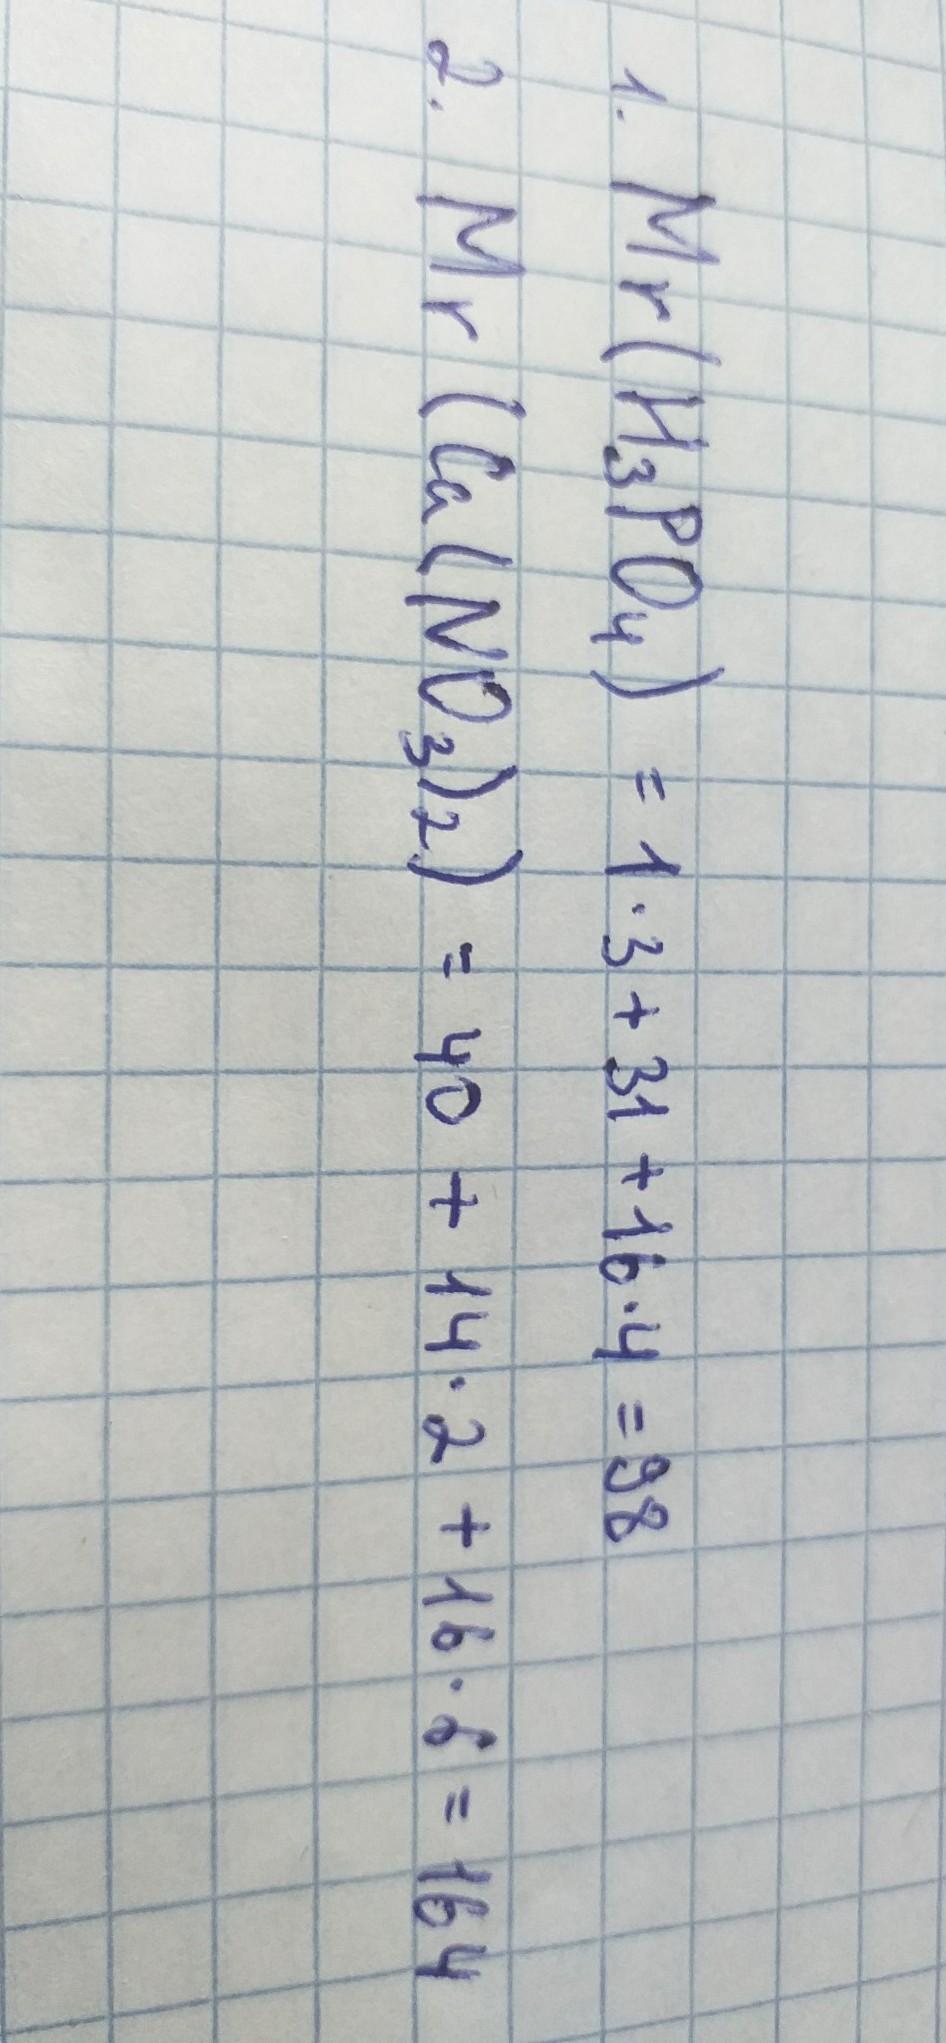 1. Mr(H₃PO₄) = 1·3+31+16·4=98
2. Mr(Ca(NO₃)₂) = 40 + 14·2 + 16·6 = 164